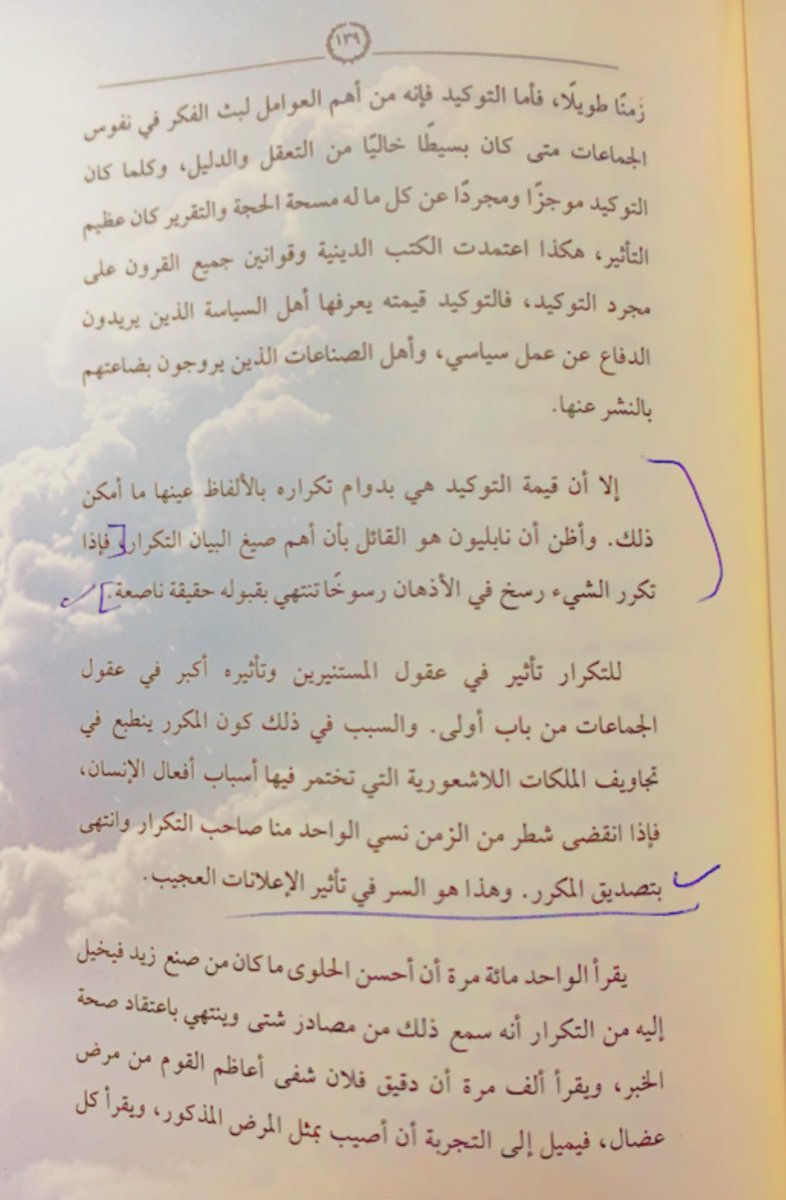 ١٣٩
زمنًا طويلًا، فأما التوكيد فإنه من أهم العوامل لبث الفكر في نفوس
الجماعات متى كان بسيطًا خاليًا من التعقل والدليل، وكلما كان
التوكيد موجزًا ومجردًا عن كل ما له مسحة الحجة والتقرير كان عظيم
التأثير، هكذا اعتمدت الكتب الدينية وقوانين جميع القرون على
مجرد التوكيد، فالتوكيد قيمته يعرفها أهل السياسة الذين يريدون
الدفاع عن عمل سياسي، وأهل الصناعات الذين يروجون بضاعتهم
بالنشر عنها.
إلا أن قيمة التوكيد هي بدوام تكراره بالألفاظ عينها ما أمكن
ذلك. وأظن أن نابليون هو القائل بأن أهم صيغ البيان التكرار، فإذا
تكرر الشيء رسخ في الأذهان رسوخًا تنتهي بقبوله حقيقة ناصعة.
للتكرار تأثير في عقول المستنيرين وتأثيره أكبر في عقول
الجماعات من باب أولى. والسبب في ذلك كون المكرر ينطبع في
تجاويف الملكات اللاشعورية التي تختمر فيها أسباب أفعال الإنسان،
فإذا انقضى شطر من الزمن نسي الواحد منا صاحب التكرار وانتهى
بتصديق المكرر. وهذا هو السر في تأثير الإعلانات العجيب.
يقرأ الواحد مائة مرة أن أحسن الحلوى ما كان من صنع زيد فيخيل
إليه من التكرار أنه سمع ذلك من مصادر شتى وينتهي باعتقاد صحة
الخبر، ويقرأ ألف مرة أن دقيق فلان شفى أعاظم القوم من مرض
عضال، فيميل إلى التجربة أن أصيب بمثل المرض المذكور، ويقرأ كل